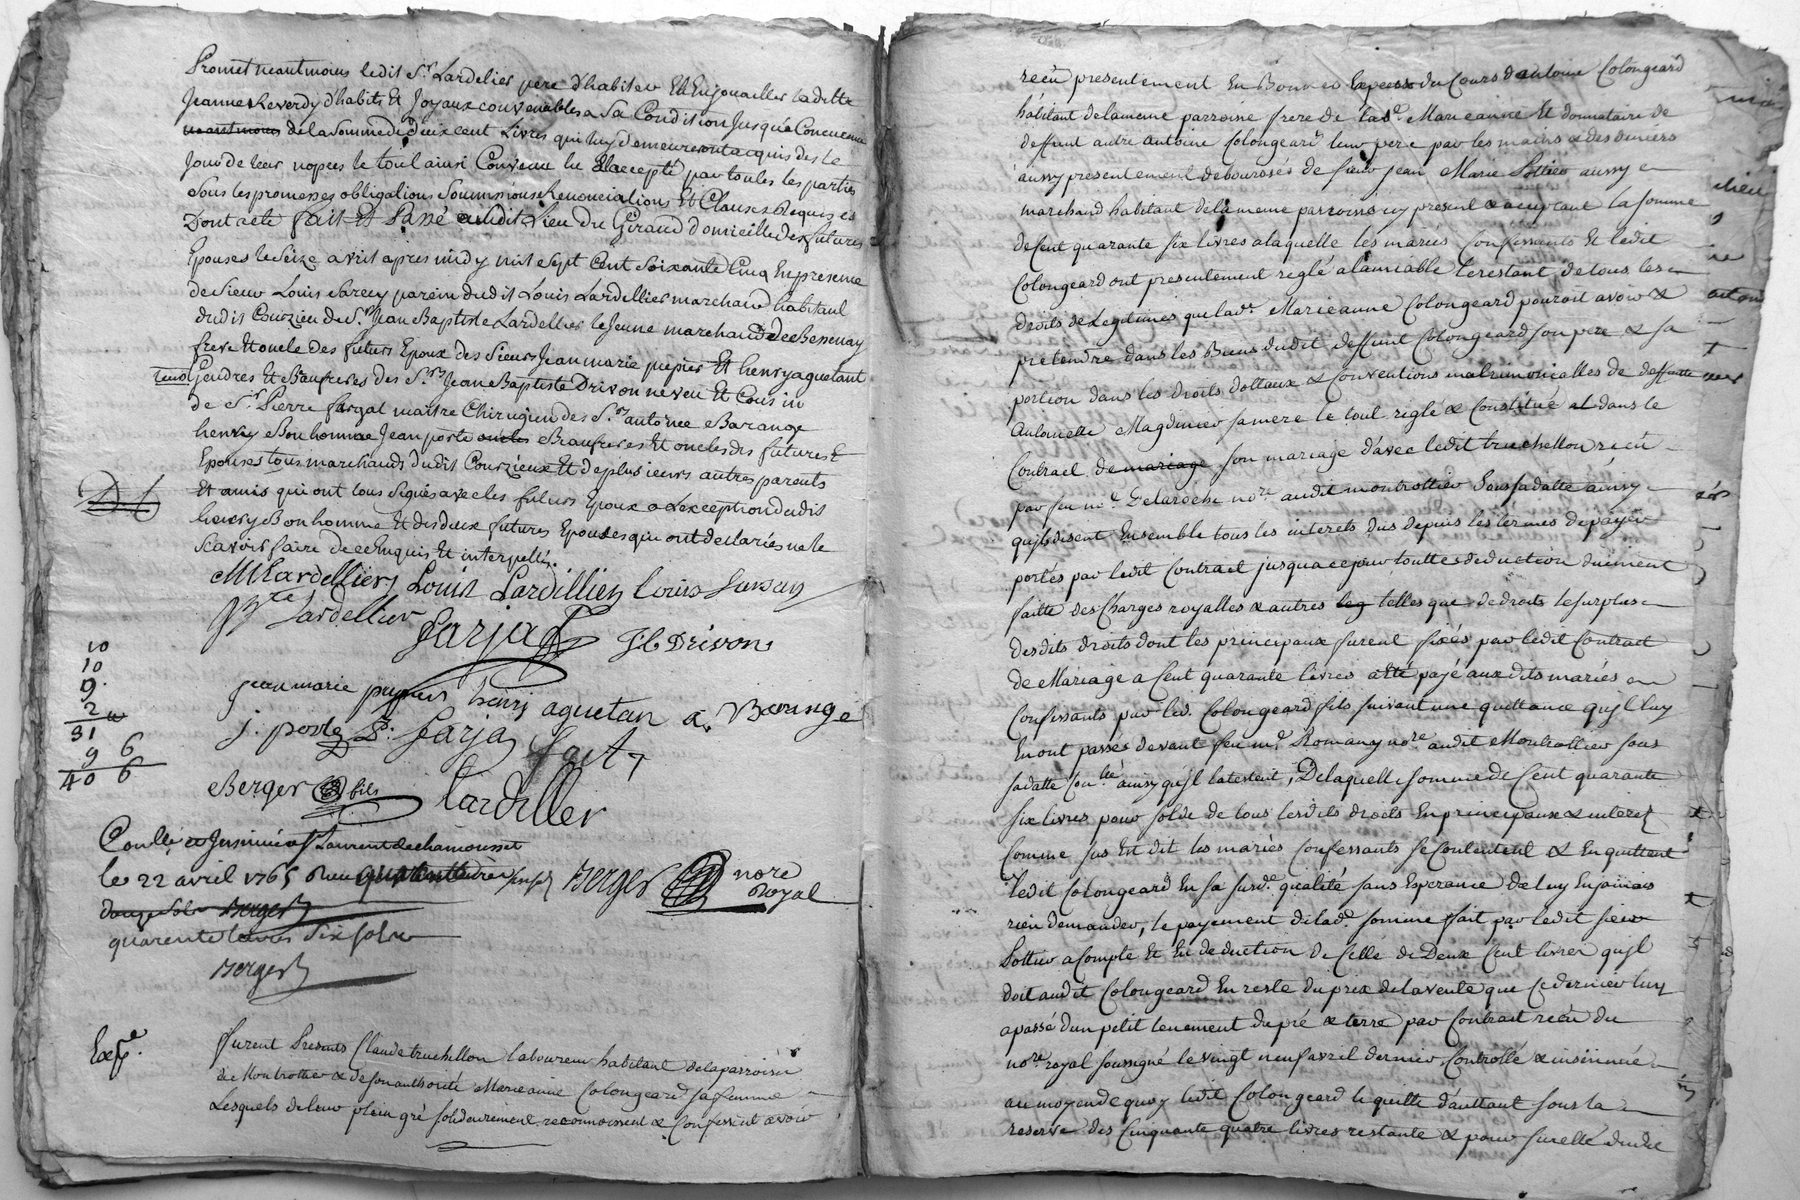 Promet neantmoins ledit Sr. Lardelier pere d'habiter Et Enjouailler laditte
Jeanne Reverdy d'habits Et Joyaux convenables a Sa Condition Jusqu'a Concurance
neantmoins de la Somme de deux cent Livres qui luy demeureront acquis des le
Jour de leur nopces le tout ainsi Convenu Et accepté par toutes les parties
Sous les promesses obligations Soummissions Renonciations Et Clauses Requises
Dont acte fait Et Passé audit Lieu du Giraud domicille des futures
Epouses le Seize avril apres midy mil Sept Cent Soixante Cinq En presence
de Sieur Louis parein dudit Louis Lardellier marchand habitant
dudit Courzieu de Sr. Jean Baptiste Lardellier le Jeune marchand de Bessenay
frere Et oncle des futurs Epoux des Sieurs Jean marie pupier Et henry aquetant
Gendres Et Beaufreres des Srs. Jean Baptiste Drivon neveu Et Cousin
de Sr. Pierre fargat maitre Chirugien des Srs. antoine Barange
henry Bonhomme Jean porte oncles Beaufreres Et oncles des futures
Epouses tous marchands dudit Courzieux Et de plusieurs autres parents
Et amis qui ont tous Signés avec les futurs Epoux a L'exception dudit
henry Bonhomme Et des deux futures Epouses qui ont declarées ne le
Scavoir faire de ce Enquis Et interpellés.
Lardellier Louis Lardillier Louis
Lardellier
Farjat JB Drivon
10
10
9
2
31
9 6
40 6
jean marie pupier henri aquetan a. Baringe
j. porte Farja fait
Berger fils Lardiller
Conllé et Jnsinué a St Laurent de chamousset
le 22 avril 1765 Reçu
Berger nore Royal
douze Sols Berger
quarente livres Six Sols
Berger
Expe.
Furent Presents Claude truchellon laboureur habitant de la parroisse
de Montrottier & de son authorité Marieanne Colongeard sa femme
Lesquels de leur plein gré solidairement reconnoissent & Confessent avoir
recû presentement En Bonnes Especes du Cours d'antoine Colongeard
habitant de la meme parroisse frere de lade. Marieanne Et donnataire de
deffunt autre antoine Colongeard leur pere par les mains & des deniers
aussy presentement deboursés de sieur jean Marie Pottier aussy
marchand habitant de la meme parroisse icy present & acceptant la somme
de Cent quarante six livres a laquelle les mariés Confessants Et ledit
Colongeard ont presentement reglé a lamiable le restant de tous les
droits de Legitimes que lade. Marieanne Colongeard pouroit avoir &
pretendre dans les Biens dudit deffunt Colongeard son pere & sa
portion dans les droits dottaux & Conventions matrimonialles de deffunte
Antoinette Magdinier sa mere le tout reglé & Constitué dans le
Contract de mariage son mariage d'avec ledit truchellon recû
par feu me. Delaroche nore. audit montrottier Sous sa datte ainsy
quils disent Ensemble tous les interets dus depuis les termes de payer
portés par ledit Contract jusqu'a ce jour toutte deduction duement
faitte des Charges royalles & autres leg telles que de droits le surplus
desdits droits dont les principaux furent fixés par ledit Contract
de Mariage a Cent quarante livres a eté payé aux dits mariés
Confessants par led. Colongeard fils suivant une quittance quil luy
En ont passée devant feu me. Romany nore. audit Montrottier sous
sa datte Conlée ainsy quil latestent, De laquelle somme de Cent quarante
six livres pour solde de tous lesdits droits En principaux & interet
Comme sus Est dit les mariés Confessants se Contentent & En quittent
ledit Colongeard En sa susde. qualité sans Esperance de luy En jamais
rien demander, le payement de lade. somme fait par ledit sieur
Pottier a Compte Et En deduction de Celle de Deux Cent livres quil
doit audit Colongeard En reste du prix de la vente que Ce dernier luy
a passé d'un petit tenement de pré & terre par Contract recû du
nore. royal soussigné le vingt neuf avril dernier, Controllé & insinué
au moyen de quoy ledit Colongeard le quitte d'auttant sous la
reserve des Cinquante quatre livres restante & pour sureté dudit